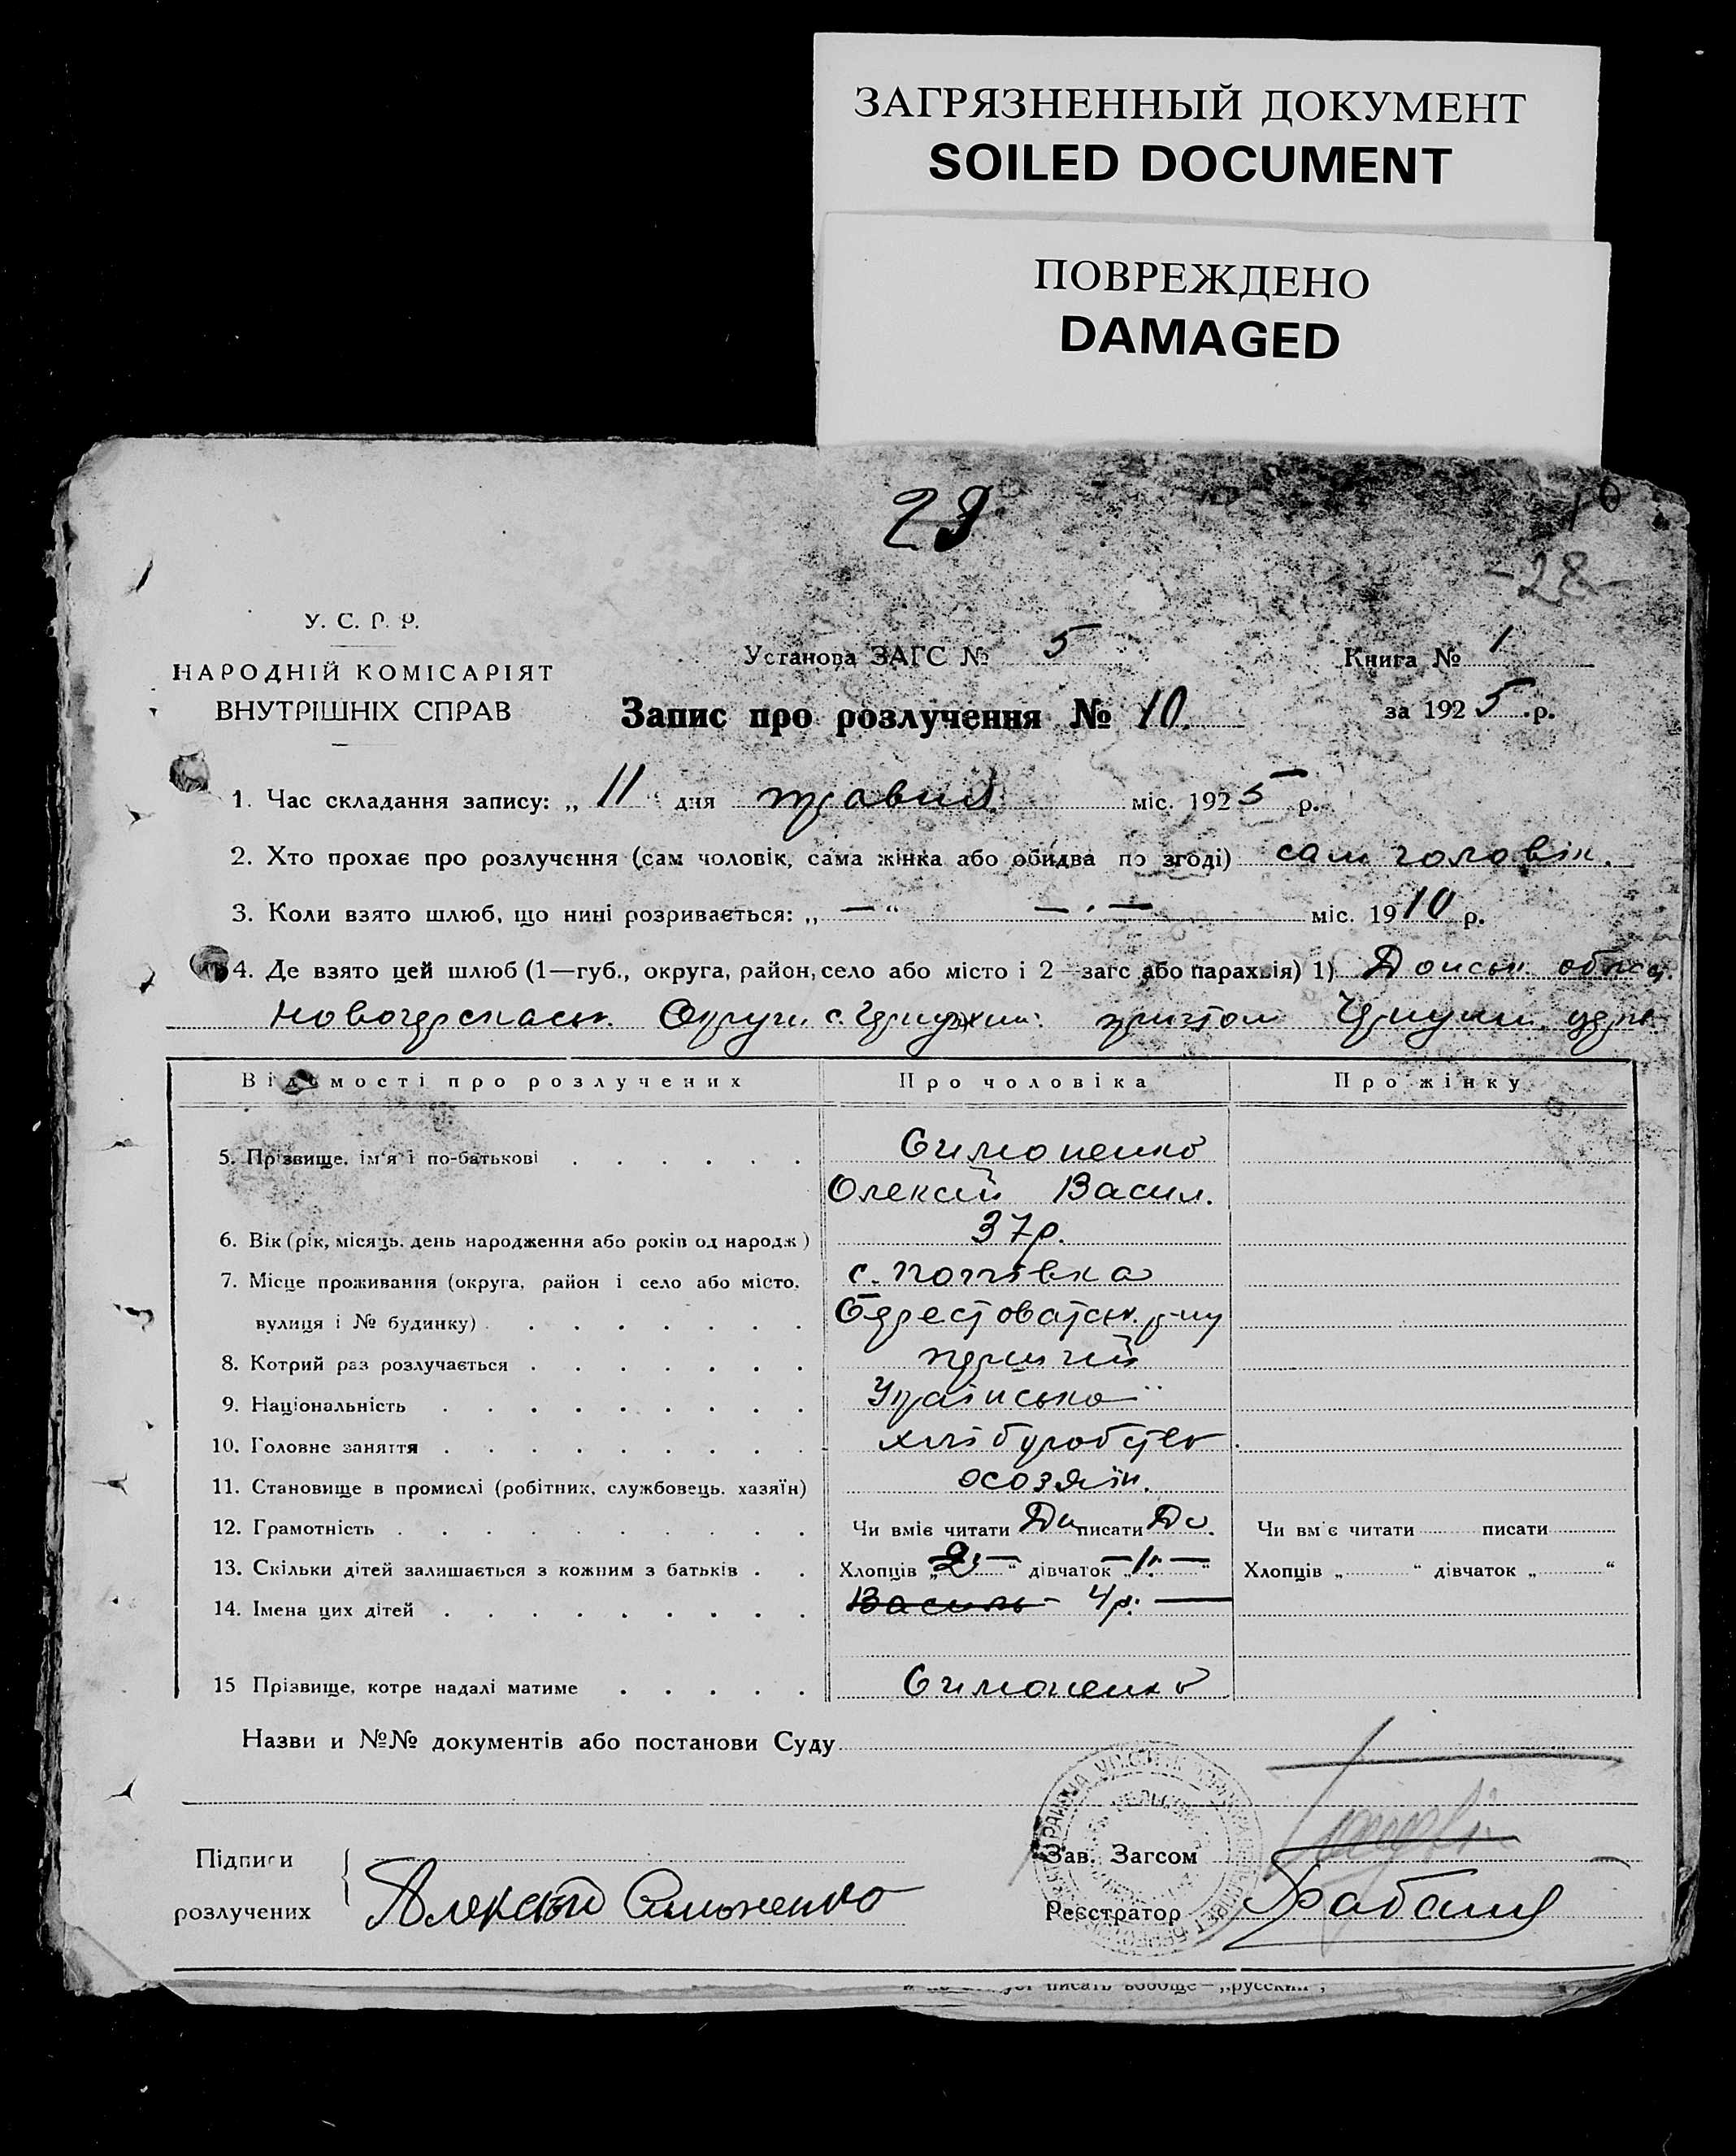 ЗАГРЯЗНЕННЫЙ ДОКУМЕНТ
SOILED DOCUMENT
ПОВРЕЖДЕНО
DAMAGED
10
-28-
У. С. Р. Р.
НАРОДНІЙ КОМІСАРІЯТ
ВНУТРІШНІХ СПРАВ
Установа ЗАГС № 5
Книга № 1
Запис про розлучення № 10.
за 1925 р.
1. Час складання запису: „ 11 “ дня травня міс. 1925 р.
2. Хто прохає про розлучення (сам чоловік, сама жінка або обидва по згоді) сам чоловік.
3. Коли взято шлюб, що нині розривається: „ — “ — . — міс. 1910 р.
4. Де взято цей шлюб (1—губ., округа, район, село або місто і 2—загс або парахвія) 1) Донськ. област.
Новочеркаськ. Округи с.
Відомості про розлучених
Про чоловіка
Про жінку
5. Прізвище, ім'я і по-батькові . . . . . . Симоненко
Олексій Васил.
6. Вік (рік, місяць, день народження або років од народж.) 37р.
7. Місце проживання (округа, район і село або місто, с. Потївка
вулиця і № будинку) . . . . . . . р-ну
8. Котрий раз розлучається . . . . . . . перший
9. Національність . . . . . . . . . Українська
10. Головне заняття . . . . . . . . . хлібуробство
11. Становище в промислі (робітник, службовець, хазяїн)
12. Грамотність . . . . . . . . . . Чи вміє читати Да писати Да. Чи вміє читати писати
13. Скільки дітей залишається з кожним з батьків . . Хлопців „ 2 “ дівчаток „ 1 “ Хлопців „ “ дівчаток „ “
14. Імена цих дітей . . . . . . . . . Василь - 4р. —
15 Прізвище, котре надалі матиме . . . . . Симоненко
Назви и №№ документів або постанови Суду
Підписи
розлучених
Алексей Симоненко
Зав. Загсом
Реєстратор
писать вообще—„русский“,